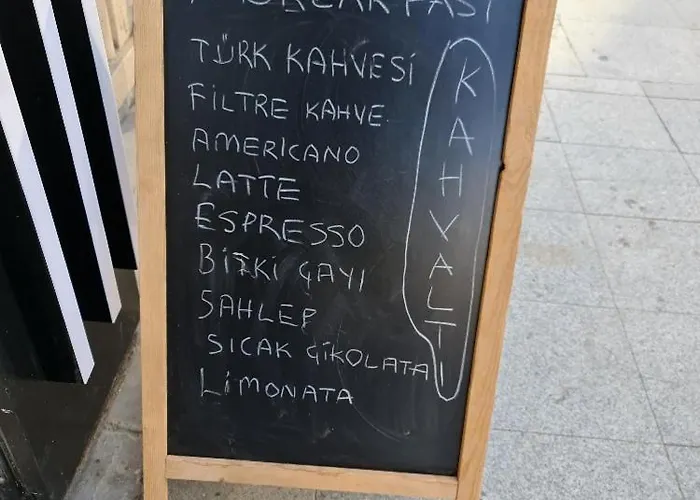 BREAKFAST
TÜRK KAHVESİ
FİLTRE KAHVE
AMERICANO
LATTE
ESPRESSO
BİTKİ ÇAYI
SAHLEP
SICAK ÇİKOLATA
LİMONATA
KAHVALTI